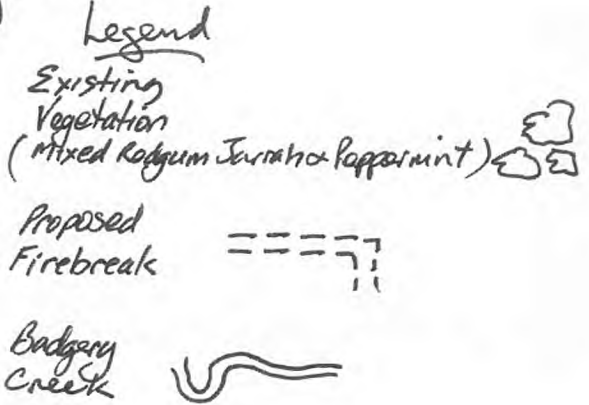 Legend
Existing
Vegetation
(Mixed Redgum Jarrah & Peppermint)
Proposed
Firebreak
Badgery
Creek